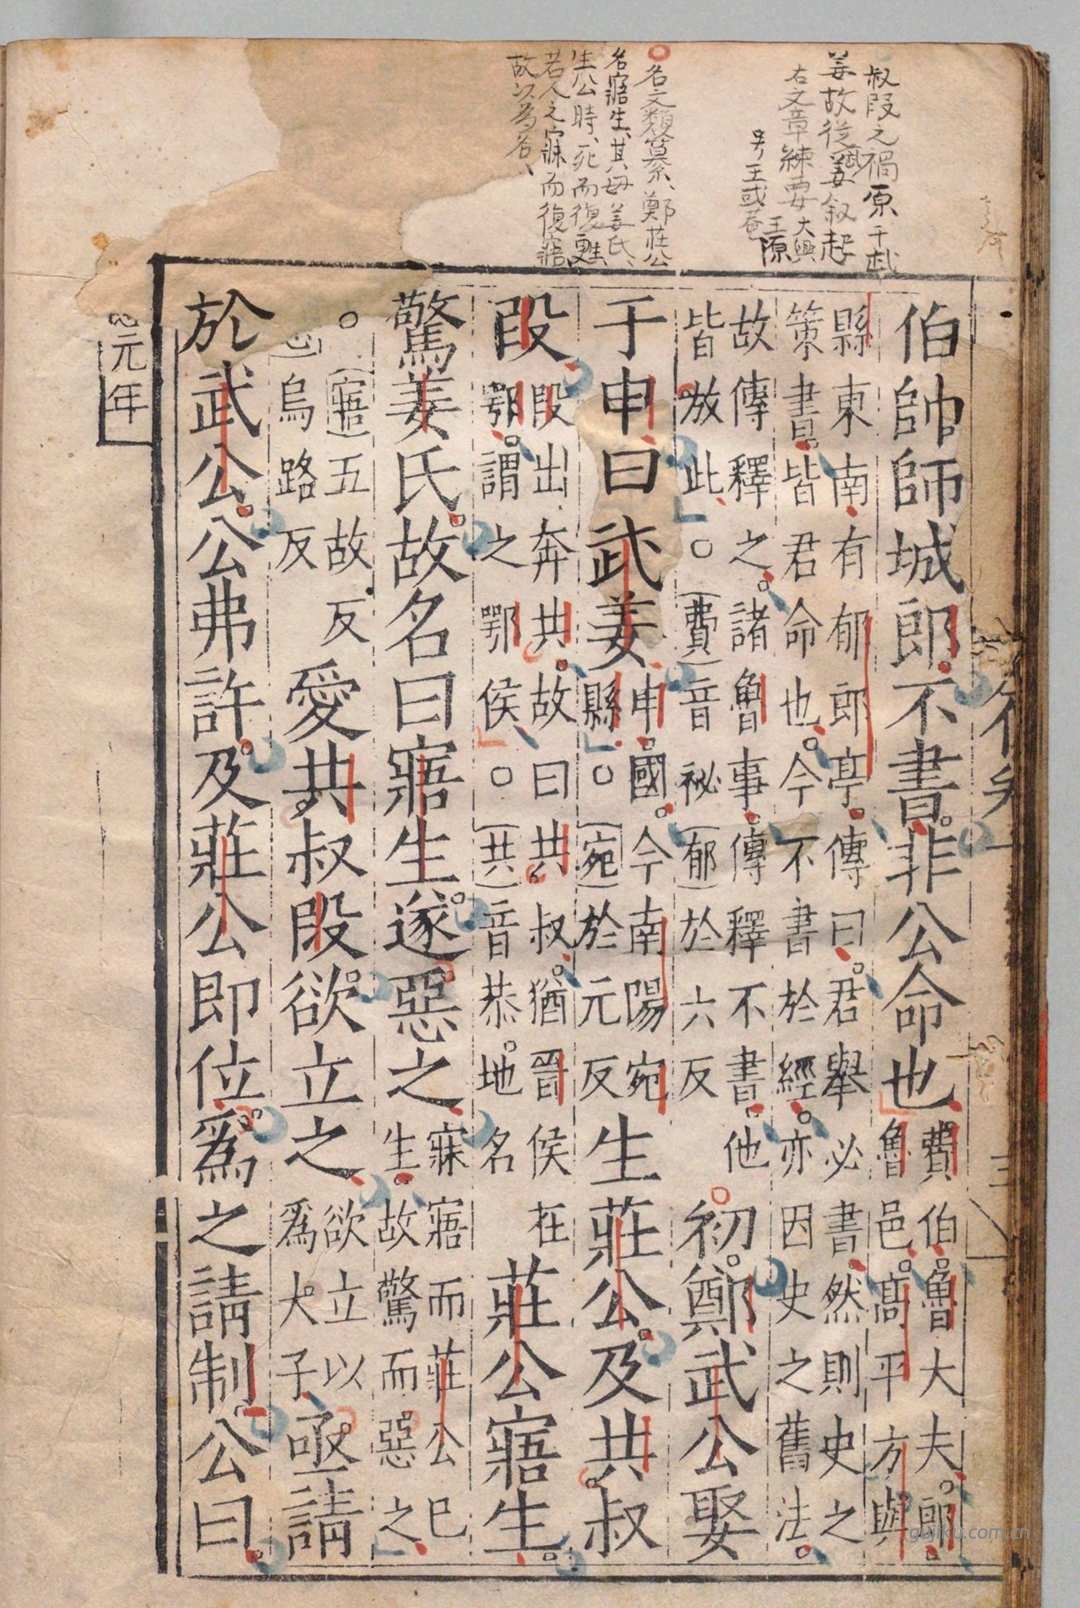 叔段之禍原于武
姜故從武姜叙起
右文章練要大興
王源
号王或菴
名文類纂、鄭莊公
名寤生、其母姜氏、
生公時、死而復甦、
若人之寐而復寤
故以為名、
伯帥師城郎不書非公命也費伯魯大夫郎
魯邑高平方與
縣東南有郁郎亭傳曰君舉必書然則史之
策書皆君命也今不書於經亦因史之舊法
故傳釋之諸魯事傳釋不書他
皆放此○(費)音祕(郁)於六反
初鄭武公娶
于申曰武姜申國今南陽宛
縣○(宛)於元反
生莊公及共叔
段段出奔共故曰共叔猶晉侯在
鄂謂之鄂侯○(共)音恭地名
莊公寤生
驚姜氏故名曰寤生遂惡之寐寤而莊公已
生故驚而惡之
○(寤)五故反
烏路反
愛共叔段欲立之欲立以
爲大子
亟請
於武公公弗許及莊公即位爲之請制公曰
元年
三
guji.com.cn